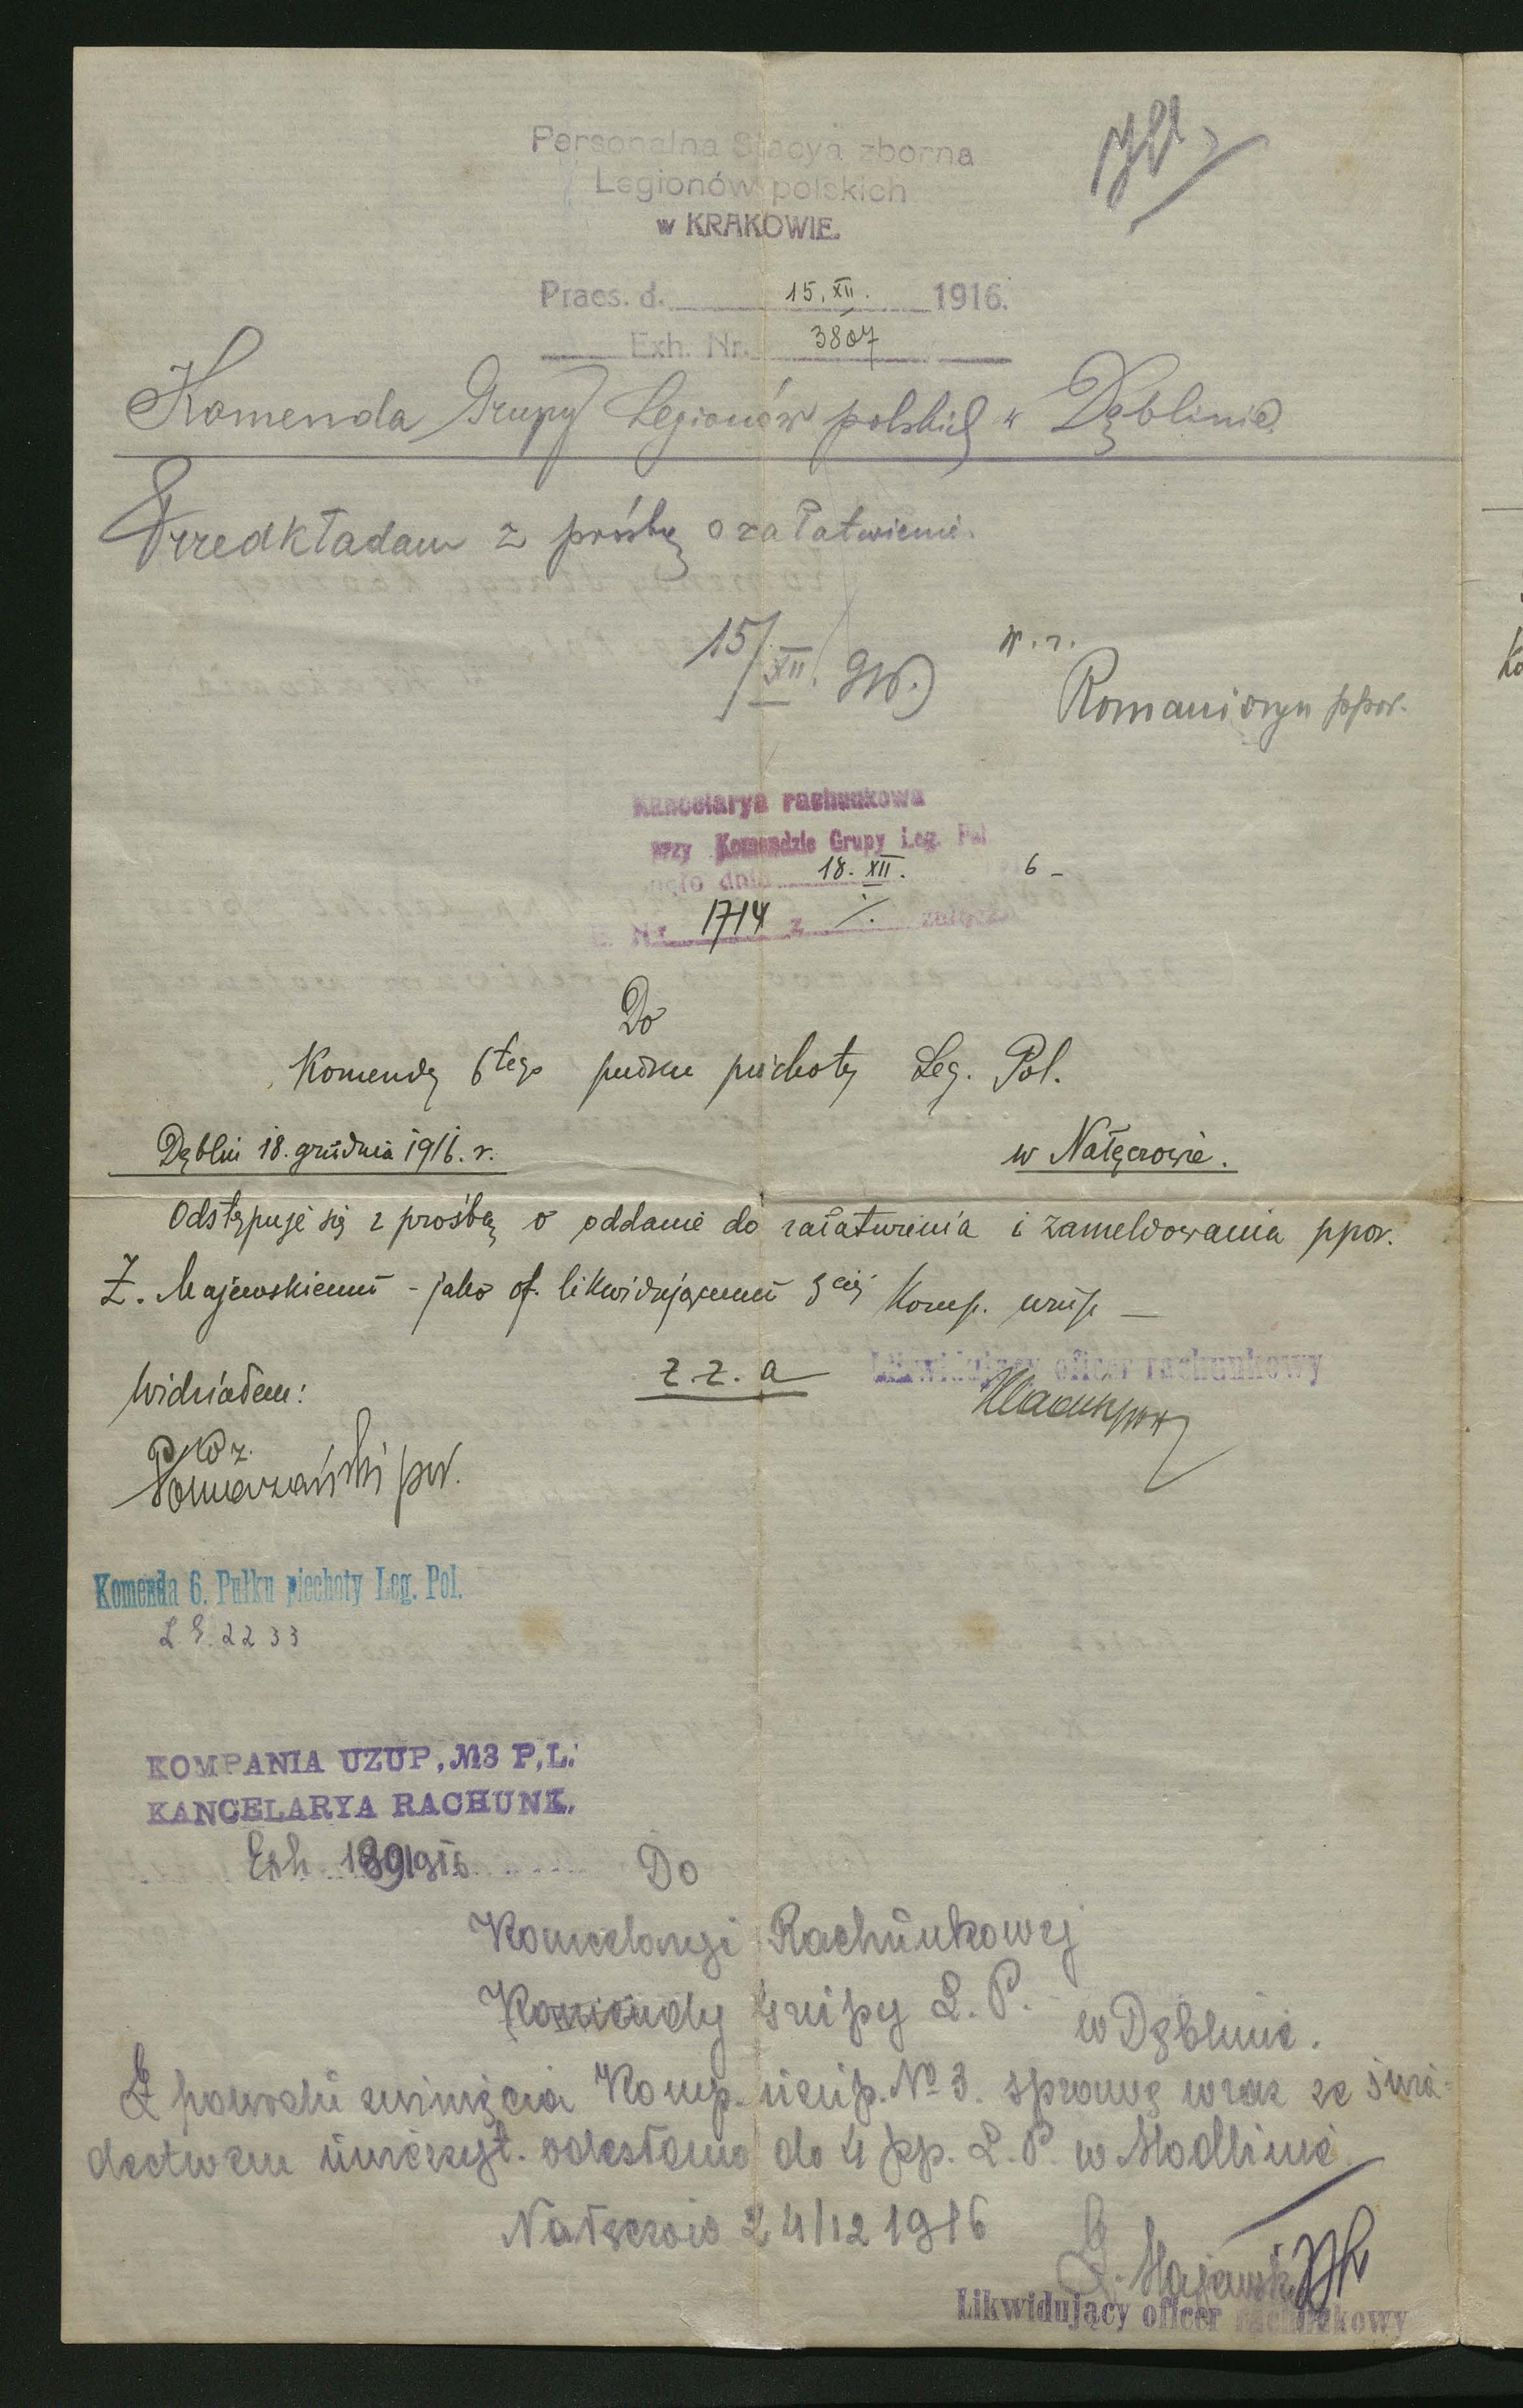 Personalna Stacya zborna
Legionów polskich
w KRAKOWIE.
Praes. d. 15. XII. 1916.
Exh. Nr. 3807
Komenda Grupy Legionów polskich w Dęblinie
Przedkładam z prośbą o załatwienie.
15/XII. 916.
w. z.
Romaniszyn ppor.
Kancelarya rachunkowa
przy Komendzie Grupy Leg. Pol
dnia 18. XII. 6
E. Nr. 1714 z ./. załącz.
Do
Komendy 6tego pułku piechoty Leg. Pol.
Dęblin 18. grudnia 1916. r.
w Nałęczowie.
Odstępuje się z prośbą o oddanie do załatwienia i zameldowania ppor.
Z. Majewskiemu - jako of. likwidującemu 3ciej Komp. uzup. —
z. z. a
Likwidujący oficer rachunkowy
Widziałem:
Pomarański por.
Komenda 6. Pułku piechoty Leg. Pol.
L. E. 2233
KOMPANIA UZUP. №3 P. L.
KANCELARYA RACHUNK.
Exh. 189/916
Do
Kancelaryi Rachunkowej
Komendy Grupy L. P.
w Dęblinie.
Z powodu zwinięcia Komp. uzup. № 3. sprawę wraz ze świa-
dectwem umieszyt. odesłano do 4 pp. L. P. w Modlinie.
Nałęczów 24/12 1916
Z. Majewski
Likwidujący oficer rachunkowy